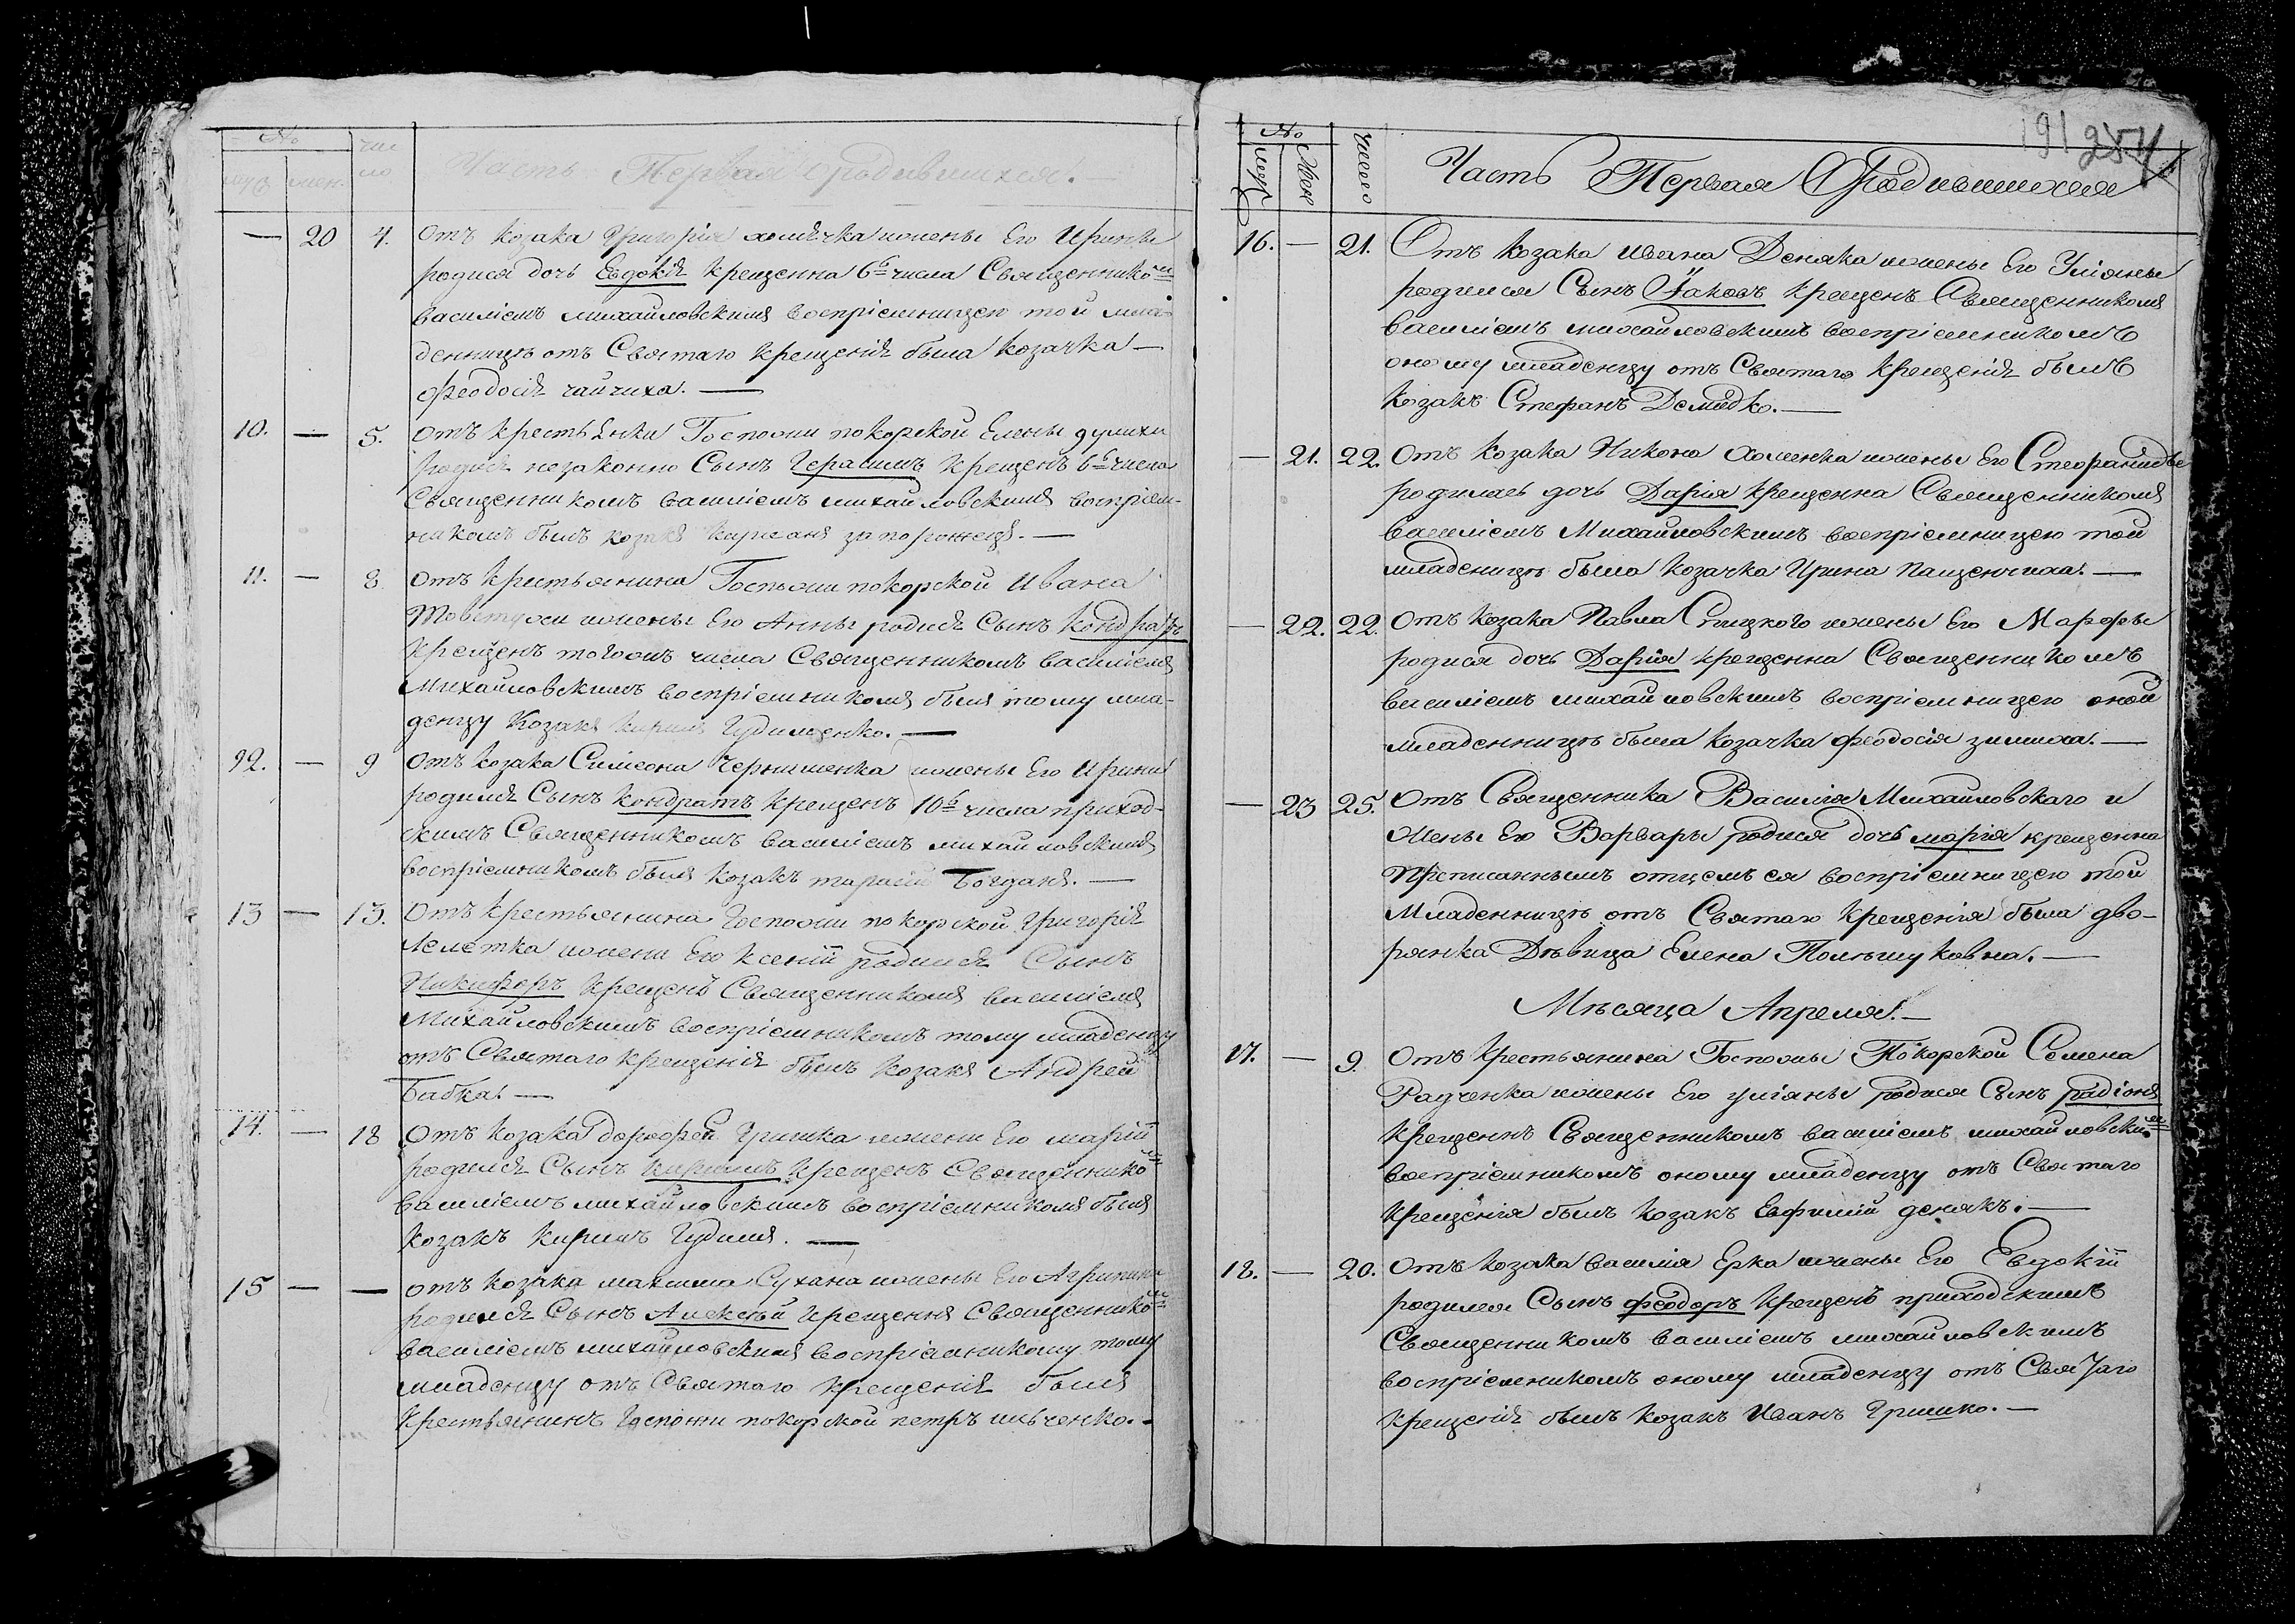 № чис
муз жен. ло Часть Первая ородившихся. —
— 20 4. Отъ козака Григорія хомѣчка ижены Его Ирины
родися дочь Евдокія крещенна 6го числа Священникомъ
василіемъ михайловскимъ воспріемницею той мла-
денницѣ отъ Святаго крещенія была козачка —
феодосія чайчиха. —
10. — 5. Отъ крестьянки Госпожи покорской Елены
родися незаконно Сынъ Герасимъ крещенъ 6го числа
Священникомъ василіемъ михайловскимъ воспріем-
никомъ былъ козакъ запорожецъ. —
11. — 8 Отъ крестьянина Госпожи покорской Ивана
Товстухи ижены Его Анны родися Сынъ Кондратъ
крещенъ тогожъ числа Священникомъ василіемъ
Михайловскимъ воспріемникомъ былъ тому мла-
денцу Козакъ кирилъ Гудименко. —
12. — 9 Отъ козака Симеона Чернышенка ижены Его Ирины
родился Сынъ кондратъ крещенъ 10го числа приход-
скимъ Священникомъ василіемъ михайловскимъ
воспріемникомъ былъ козакъ тарасій Богданъ. —
13 — 13. Отъ крестьянина Госпожи покорской Григорія
ижени Его Ксеніи родился Сынъ
Никифоръ крещенъ Священникомъ василіемъ
Михайловскимъ воспріемникомъ тому младенцу
отъ Святаго крещенія былъ козакъ Андрей
Бабка. —
14. — 18 Отъ козака дорофея Гришка ижени Его маріи
родился Сынъ кирилъ крещенъ Священникомъ
василіемъ михайловскимъ воспріемникомъ былъ
козакъ кирилъ Гудима. —
15 — — Отъ козака максима Сухана ижены Его Агрипины
родился Сынъ Алексѣй крещенъ Священникомъ
василіемъ михайловскимъ воспріемникому тому
младенцу отъ Святаго крещенія былъ
крестьянинъ Госпожи покорской петръ ильченко. -
191 254
№ число
муж Жен Часть Первая ородившихся
16. — 21. Отъ козака ивана Деняка ижены Его Уліяны
родился Сынъ Іаковъ крещенъ Священникомъ
василіемъ михайловскимъ воспріемникомъ
оному младенцу отъ Святаго крещенія былъ
козакъ Стефанъ Демидко. —
— 21. 22. Отъ козака Никона хоменка ижены Его Стефаниды
родилась дочь Дарія крещенна Священникомъ
василіемъ Михайловскимъ воспріемницею той
младеницѣ была козачка Ирина пащенчиха. —
— 22. 22. Отъ козака Павла Спицкого ижены Его Марфы
родися дочь Дарія крещенна Священникомъ
василіемъ михайловскимъ воспріемницею оной
младенницѣ была козачка феодосія зимиха. —
— 23 25. Отъ Священника Василія Михайловскаго и
жены Его Варвары родися дочь марія крещенна
прописаннымъ отцемъ ея воспріемницею той
Младенницѣ отъ Святаго крещенія была дво-
рянка Дѣвица Елена Полгшуковна. —
Мѣсяца Апреля. —
17. — 9. Отъ крестьянина Госпожы Покорской Семена
Радченка ижены Его уліяны родися Сынъ радіонъ
крещенъ Священникомъ василіемъ михайловскимъ
воспріемникомъ оному младенцу отъ Святаго
крещенія былъ козакъ Евфимій денякъ. —
18. — 20. Отъ козака василія Ерка ижены Его Евдокіи
родился Сынъ феодоръ крещенъ приходскимъ
Священникомъ василіемъ михайловскимъ
воспріемникомъ оному младенцу отъ Святаго
крещенія былъ козакъ Иванъ Гришко. —